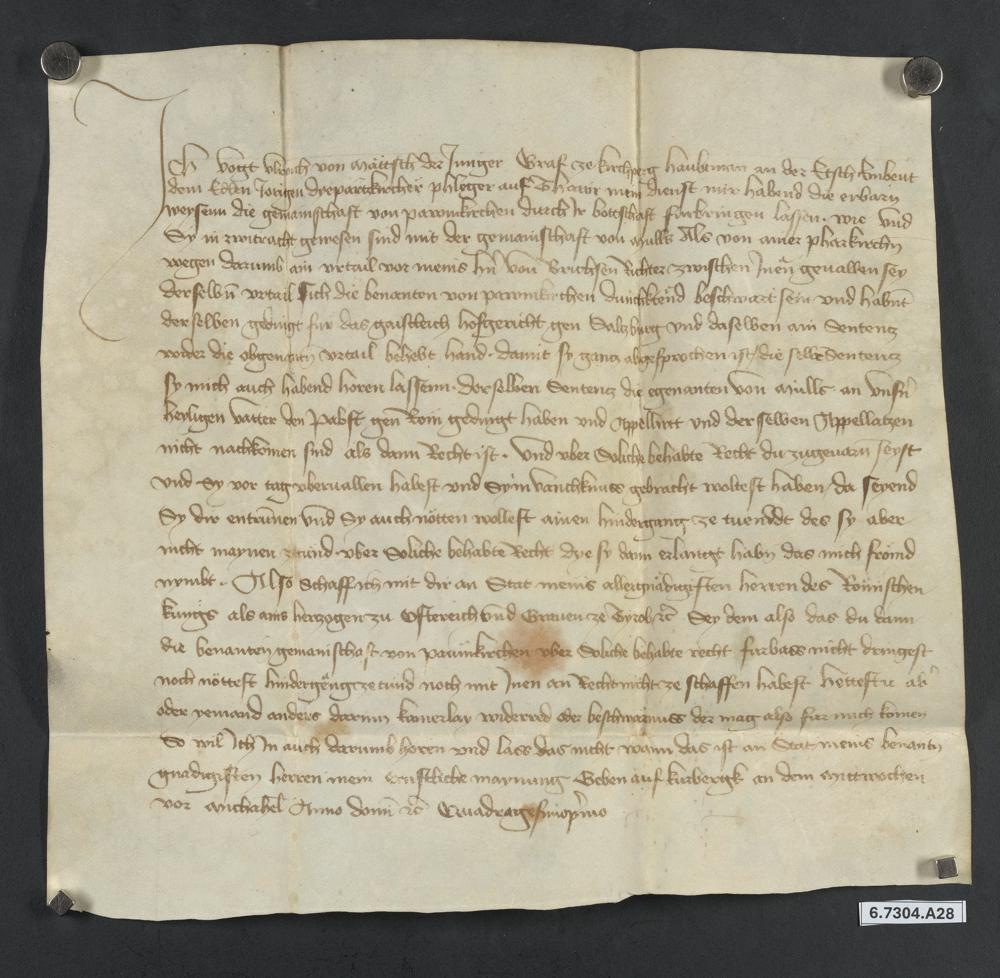 Ich vogt Vlreich von Mätsch der Junger Graf ze kirchperg haubtman an der Etsch Embeut
dem Edlen Jorigen phleger auf Thawr mein dienst mir habend die erbarn
weysenn die gemainschaft von pawmkirchen durch Ir boteschaft furbringen lassen. wie vnd
Sy in zwitracht gewesen sind mit der gemainschaft von Mulls Als von ainer pharkirchn
wegen darumb ain vrtail vor meins hn̄ von Brichsen Richter zwischen Jnen geuallen sey
derselbn̄ vrtail Sich die benanten von pawmkirchen dunkktend beschwart sein vnd habnt
derselben gedingt fur das gaistleich hofgericht gen Salzburg vnd daselben ain Sentencz
wider die obgenantn vrtail behebt hand. damit sy gancz abgesprochen ist die selb Sentencz
sy mich auch habend horen lassenn. derselben Sentencz die egenanten von Mulls an vnsn̄
heyligen vatter den Pabst gen Rom gedingt haben vnd Appellirt vnd der selben Appellatzen
nicht nachkomen sind als dann Recht ist. vnd vber Soliche behabte Recht du zugeuarn seyst
vnd Sy vor tag vberuallen habest vnd Sy in vanckhnuss gebracht woltest haben da seyend
Sy dir entrunnen vnd Sy auch nötten wollest ainen hindergang ze tuen des sy aber
nicht maynen ze tund vber Soliche behabte Recht dye sy dann erlangt habn das mich frömd
nymbt. Also Schaff ich mit dir an Stat meins allergnädigisten herren des Römischen
kunigs als ains herzogen zu Osterreich vnd Grauen ze Tyrol rc̄ Sey dem also das du dann
die benanten gemainschaft von pawmkirchen vber Soliche behabte recht furbass nicht dringest
noch nöttest hindergeng ze tund noch mit Jnen an Recht nicht ze schaffen habest hettestu ab̄
oder yemand anders darinn widerred oder beschwarnuss der mag also fur mich komen
So wil Ich In auch darumb horen vnd lass das nicht wann das ist an Stat meins benantn
gnadigisten herren mein ernstliche maynung Geben auf an dem Mittwochen
vor Michahel Anno domi rc̄ Quadragesimoprimo
6.7304.A28